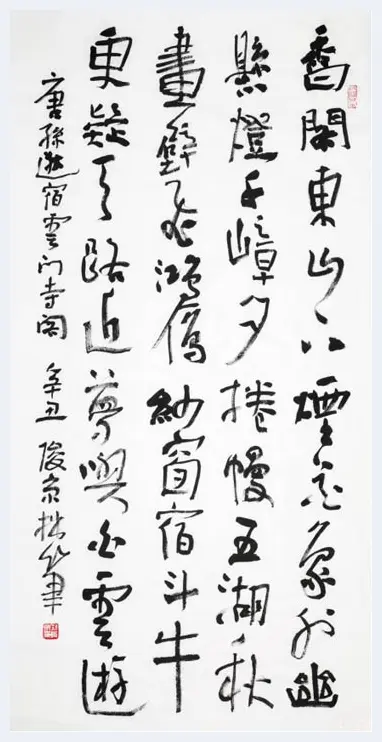 香閣東山下煙花象外幽
懸燈千嶂夕捲幔五湖秋
畫壁鴻鴈紗窗宿斗牛
更疑天路近夢與白雲遊
唐孫逖宿雲门寺閣 辛丑 俊京拙筆